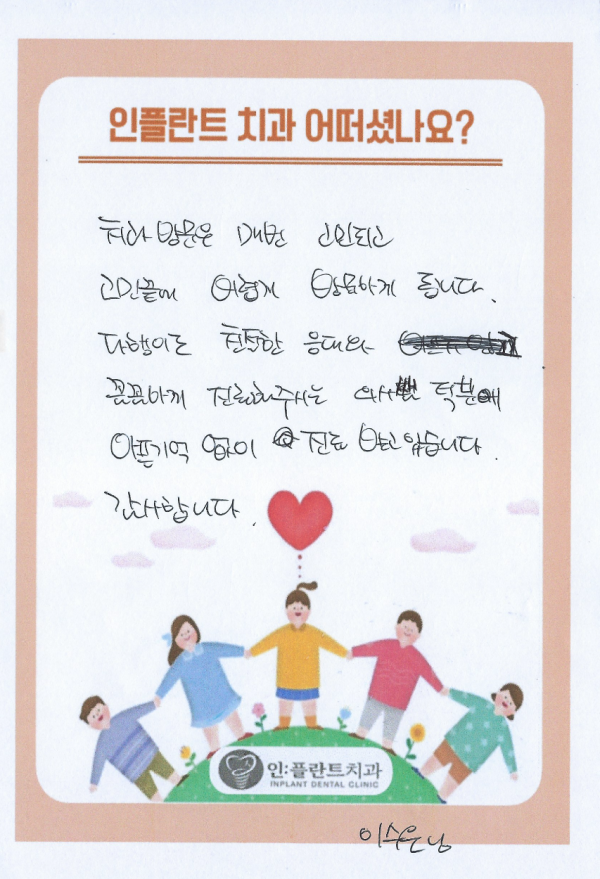 인플란트 치과 어떠셨나요?
치과 방문은 매번 고민되고
고민끝에 어렵게 방문하게 됩니다.
다행이도 친절한 응대와
꼼꼼하게 진료해주시는 의사쌤 덕분에
아픈기억 없이 진료 받고있습니다.
감사합니다.
인:플란트치과
INPLANT DENTAL CLINIC
이수은님